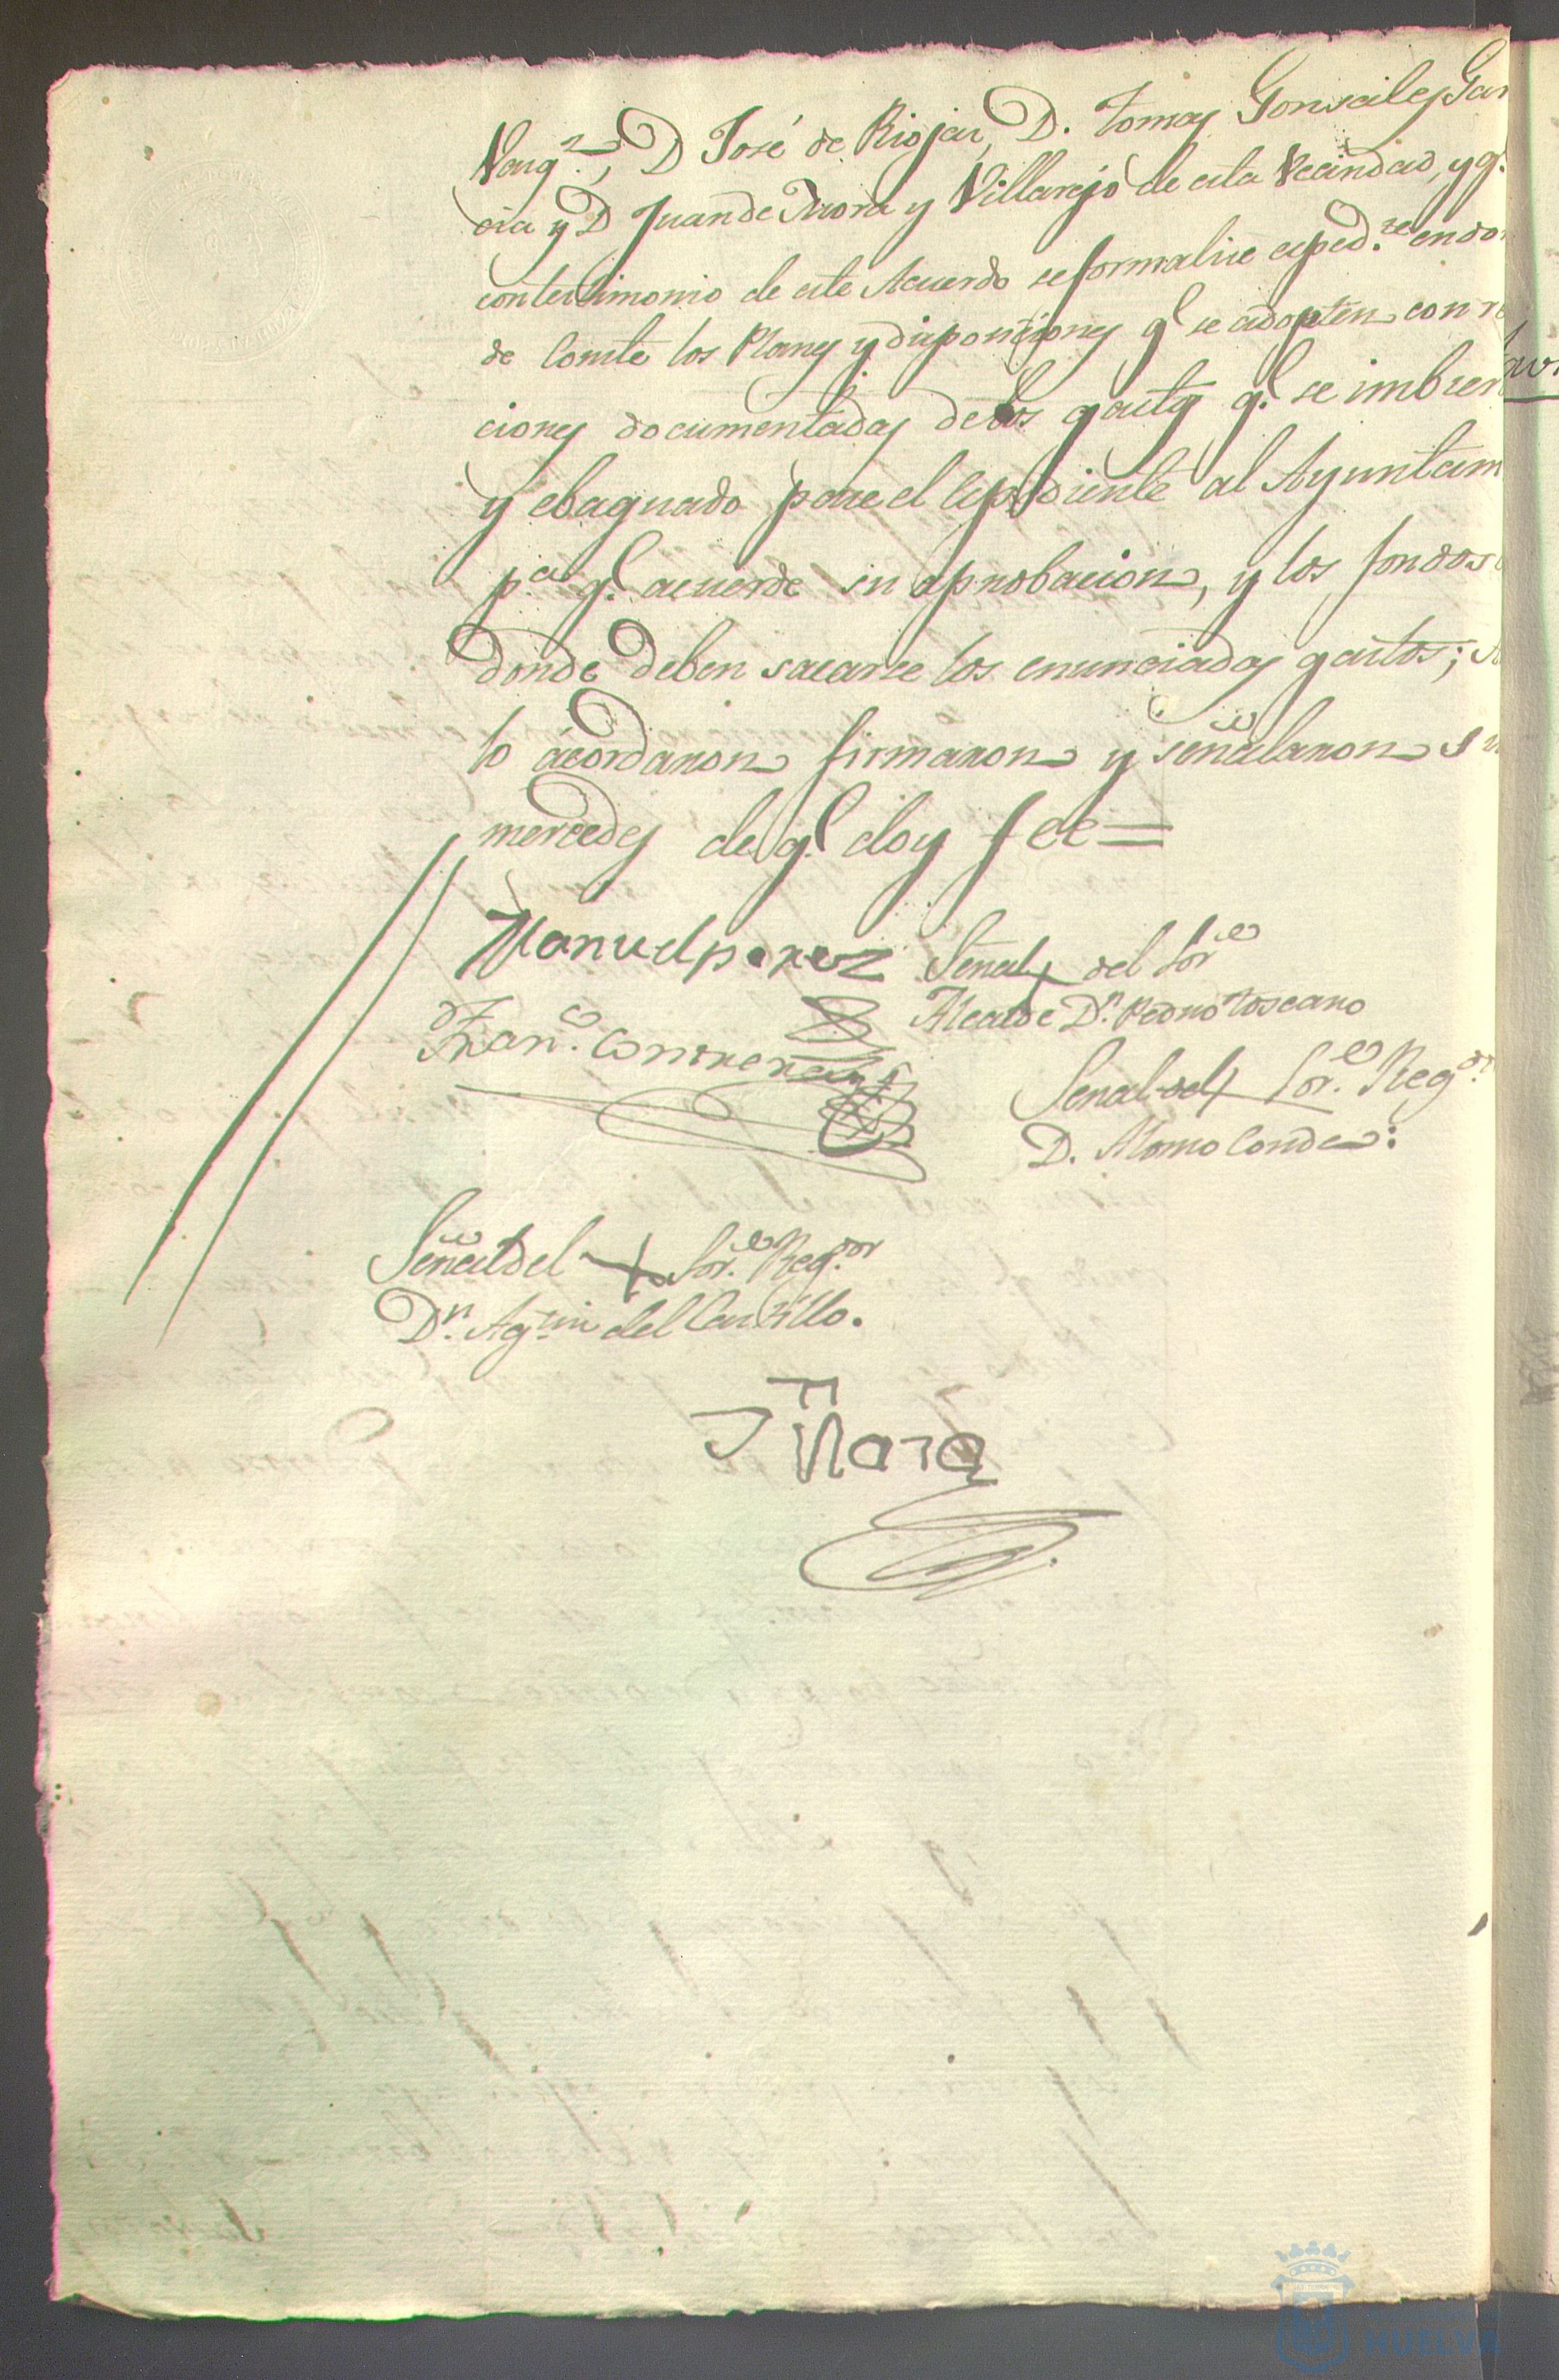 Vazq.z, D José de Rioja, D. Tomas Gonsales Gar
cia y D Juan de Mora y Villarejo de esta Vecindad, y q.
con testimonio de este Acuerdo se formalise exped.te en don
de Conste los Planes y disposiciones q.e se adopten con re
ciones documentadas de los gastos q.e se imbier
y ebaquado pase el Expediente al Ayuntam
p.a q.e acuerde su aprobacion, y los fondos
donde deben sacarse los enunciados gastos;
lo acordaron firmaron y señalaron su
mercedes de q.e doy fee =
Manuel perez
Señal + del Sor.e
Alcalde D.n Pedro Toscano
Fran.co Contreras
Señal del + Sor.e Reg.or
D. Alonso Conde:
Señal del + Sor.e Reg.or
D.n Ag.tin del Castillo.
HUELVA